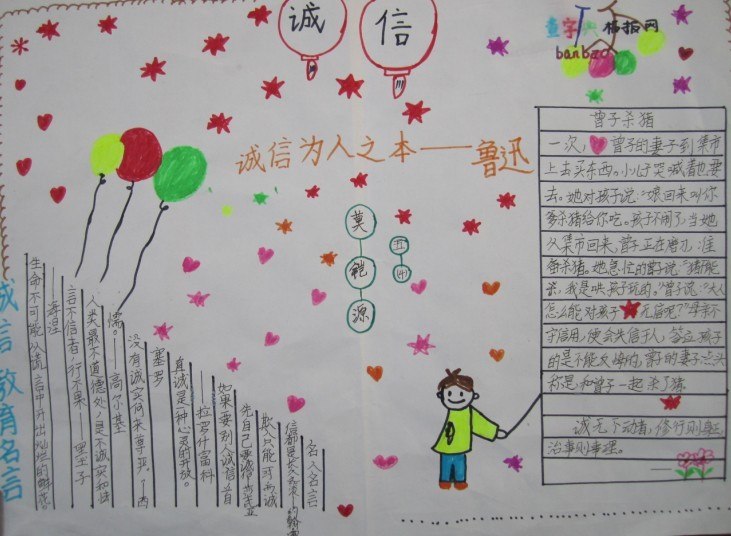 诚信
查字典板报网
banbao
诚信为人之本——鲁迅
莫铠源
五(4)
曾子杀猪
一次，曾子的妻子到集市
上去买东西。小儿子哭喊着也要
去。她对孩子说：“娘回来叫你
爹杀猪给你吃。孩子不闹了，当她
从集市回来，曾子正在磨刀，准
备杀猪。她急忙的曾子说：“猪能
杀，我是哄孩子玩的。”曾子说：“大人
怎么能对孩子无信呢？”母亲不
守信用，便会失信于人，答应孩子
的是不能反悔的，曾子的妻子点头
称是和曾子一起杀了猪
诚无不动者，修行则事正，
治事则事理。
诚信教育名言
名人名言
信都是长久
欺人只能一时，诚
先自己要诚信
如果要别人诚信，首
——拉罗什富科
真诚是一种心灵的开放。
塞罗
没有诚实何来尊严？—西
儒。——高尔基
人类最不道德处，是不诚实和怯
言不信者，行不果——墨子
——海涅
生命不可能从谎言中开出灿烂的鲜花。